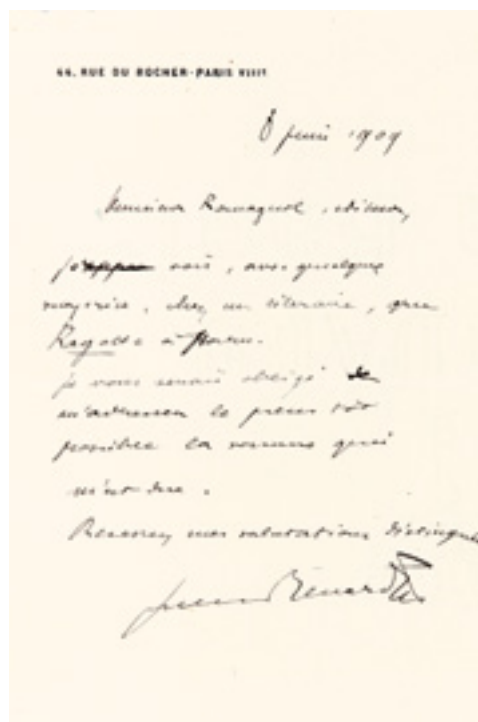 44, RUE DU ROCHER-PARIS VIIIᵉ
8 juin 1909
Monsieur Romagnol, éditeur,
je vois, avec quelque
surprise, chez un libraire, que
Ragotte a paru.
je vous serais obligé de
m'adresser le plus tôt
possible la somme qui
m'est due.
Recevez mes salutations distinguées
Jules Renard